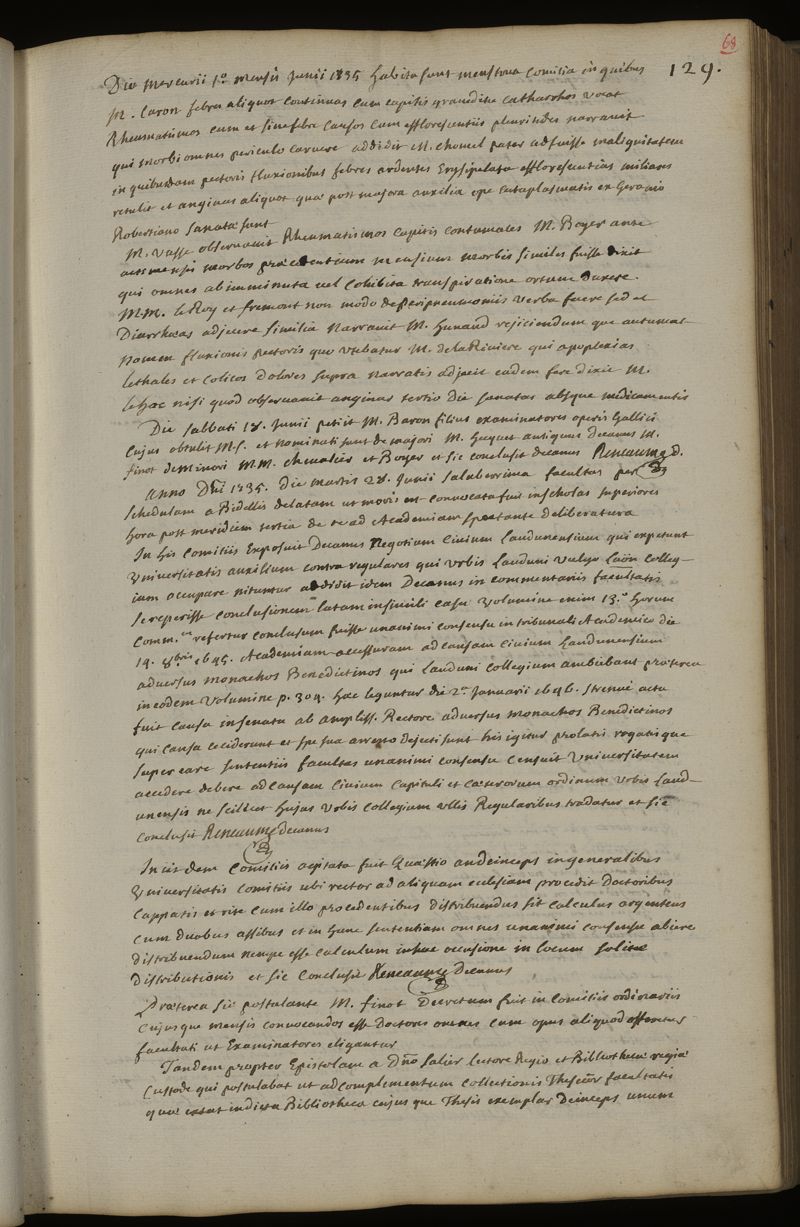 68
129.
Die Mercurii 1.o Mensis Junii 1735 habita sunt menstrua Comitia in quibus
M. Caron febres aliquot continuas cum capitis gravedine catharrhos vocat
Rheumatismos cum et sine febre Causos cum efflorescentiis pleuritides narravit
qui morbi omnes periculo caruere addidit M. Chomel pater adfuisse malignitatem
in quibusdam pectoris fluxionibus febres ardentes Erysipelata efflorescentias miliares
retulit et anginas aliquot quæ post majora auxilia ope cataplasmatis ex Geranio
Robertiano sanatæ sunt
M. Vasse observavit Rheumatismos Capitis contumaces M. Boyer ante
acti mensis morbos præcedentium mensium morbis similes fuisse dixit
qui omnes ab imminuta vel cohibita transpiratione ortum duxere.
M.M. leRoy et fremont non modo de peripneumoniis verba fecere sed et
Diarrhæas adjecere similia narravit M. hunaud rejiciendum que autumat
nomen fluxionis pectoris quo utebatur M. delaRiviere qui apoplexias
lethales et colicos dolores supra narratis adjecit eadem fere dixit M.
lehoc nisi quod observavit anginas tertio die sanatas absque medicamentis
Die sabbati 18. Junii petiit M. Baron filius examinatores operis Gallici
cujus obtulit MS. et nominati sunt de majori M. huquet antiquus decanus M.
finot de minori M.M. chevalier et Boyer et sic conclusit decanus Reneaume D.
Anno Dni 1735. die martis 28. Junii saluberrima facultas per
schedulam a Bidellis delatam ut moris est convocata fuit in scholas superiores
hora post meridiem tertia de re ad Academiam spectante deliberatura
In his Comitiis Exposuit Decanus Negotium Civium Laudunensium qui expetunt
Universitatis auxilium contra regulares qui urbis Lauduni vulgo Laon Colleg-
ium occupare nituntur addidit idem Decanus in commentariis facultatis
se reperisse conclusionem latam in simili casu volumine enim 13.o horum
Comm.en refertur conclusum fuisse unanimi consensu in tribunali Academico die
19. 8bris 1695. Academiam accessuram ad causam Civium Laudunensium
adversus monachos Benedictinos qui Lauduni collegium ambibant præterea
in eodem volumine p. 309. hæc leguntur die 2.a Januarii 1696. strenue acta
fuit causa in senatu ab ampliss. Rectore adversus monachos Benedictinos
qui causa ceciderunt et spe sua dejecti sunt his igitur prolatis rogatis que
super eare sententiis facultas unanimi consensu censuit Universitatem
accedere debere ad causam Civium Capituli et cæterorum ordinum urbis Laud-
unensis ne scilicet hujus urbis collegium ullis Regularibus tradatur et sic
conclusit Reneaume decanus
In iisdem Comitiis agitata fuit Quæstio an deinceps in generalibus
Universitatis Comitiis ubi rector ad aliquam ecclesiam procedit doctoribus
Cappatis et rite cum illo procedentibus distribuendus sit calculus argenteus
cum duobus assibus et in hanc sententiam omnes unanimi consensu abiere
distribuendum nempe esse calculum in hac occasione in locum solitæ
distributionis et sic conclusit Reneaume Decanus
Præterea sic postulante M. finot Decretum fuit in Comitiis ordinariis
cujusque mensis convocandos esse Doctores omnes cum opus aliquod offeretur
facultati ut Examinatores eligantur
Tandem propter Epistolam a Dno Salier Lectore Regio et Bibliothecæ regiæ
Custode qui postulabat ut ad complementum collectionis Thesium facultatis
quæ extat in dicta Bibliotheca cujus que Thesis exemplar deinceps unum